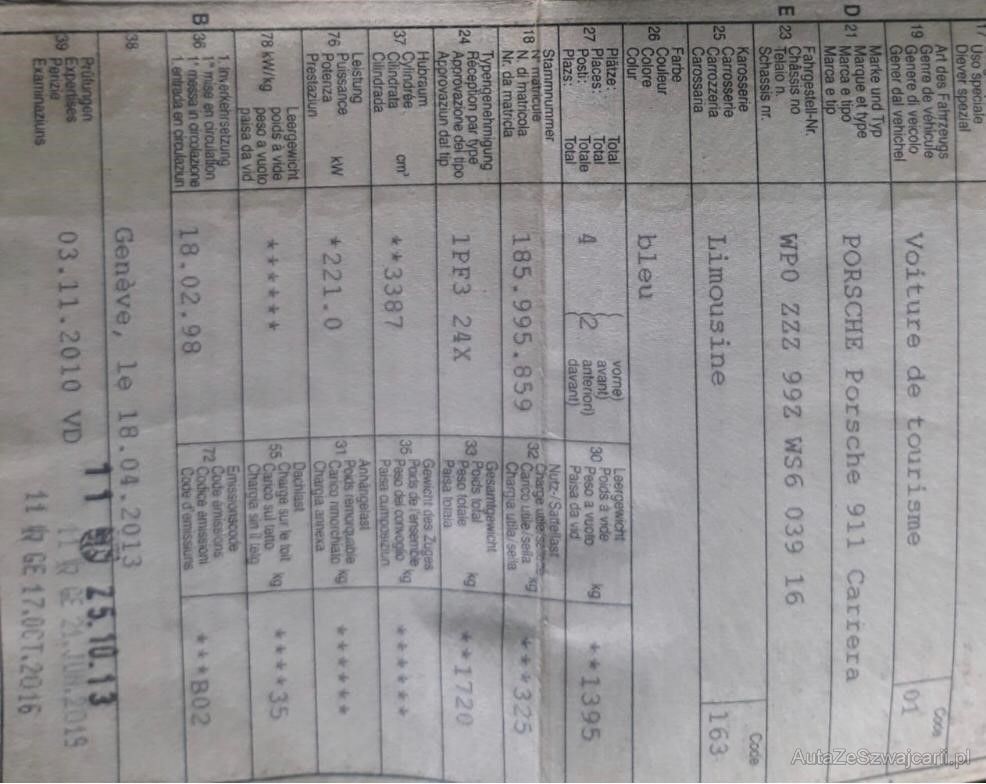 17 Uso speciale
Diever spezial
Art des Fahrzeugs
Genre de véhicule
19 Genere di veicolo
Gener dal vehichel
Voiture de tourisme
Code
01
Marke und Typ
Marque et type
D 21 Marca e tipo
Marca e tip
PORSCHE Porsche 911 Carrera
Fahrgestell-Nr.
Châssis no
E 23 Telaio n.
Schassis nr.
WP0 ZZZ 99Z WS6 039 16
Karosserie
Carrosserie
25 Carrozzeria
Carossaria
Limousine
Code
163
Farbe
Couleur
26 Colore
Colur
bleu
Plätze: Total
Places: Total
27 Posti: Totale
Plazs: Total
4
vorne)
avant)
(2 anteriori)
davant)
Leergewicht
Poids à vide
30 Peso a vuoto kg
Paisa da vid
**1395
Stammnummer
N° matricule
18 N. di matricola
Nr. da matricla
185.995.859
Nutz-/Sattellast
Charge utile/sellette
32 Carico utile/sella kg
Chargia utila/sella
***325
Typengenehmigung
Réception par type
24 Approvazione del tipo
Approvaziun dal tip
1PF3 24X
Gesamtgewicht
Poids total
33 Peso totale kg
Paisa totala
**1720
Hubraum
Cylindrée
37 Cilindrata cm³
Cilindrada
**3387
Gewicht des Zuges
Poids de l'ensemble
35 Peso del convoglio kg
Paisa cumposiziun
******
Leistung
Puissance
76 Potenza kW
Prestaziun
*221.0
Anhängelast
Poids remorquable
31 Carico rimorchiato kg
Chargia annexa
******
Leergewicht
poids à vide
78 kW/kg peso a vuoto
paisa da vid
*****
Dachlast
Charge sur le toit
55 Carico sul tetto kg
Chargia sin il tetg
****35
1. Inverkehrsetzung
1re mise en circulation
B 36 1a messa in circolazione
1. entrada en circulaziun
18.02.98
Emissionscode
Code émissions
72 Codice emissioni
Code d'emissiuns
***B02
38
Genève, le 18.04.2013
Prüfungen
39 Expertises
Perizie
Examinaziuns
03.11.2010 VD
25.10.13
GE 21.JUN.2019
GE 17.OCT.2016
AutaZeSzwajcarii.pl